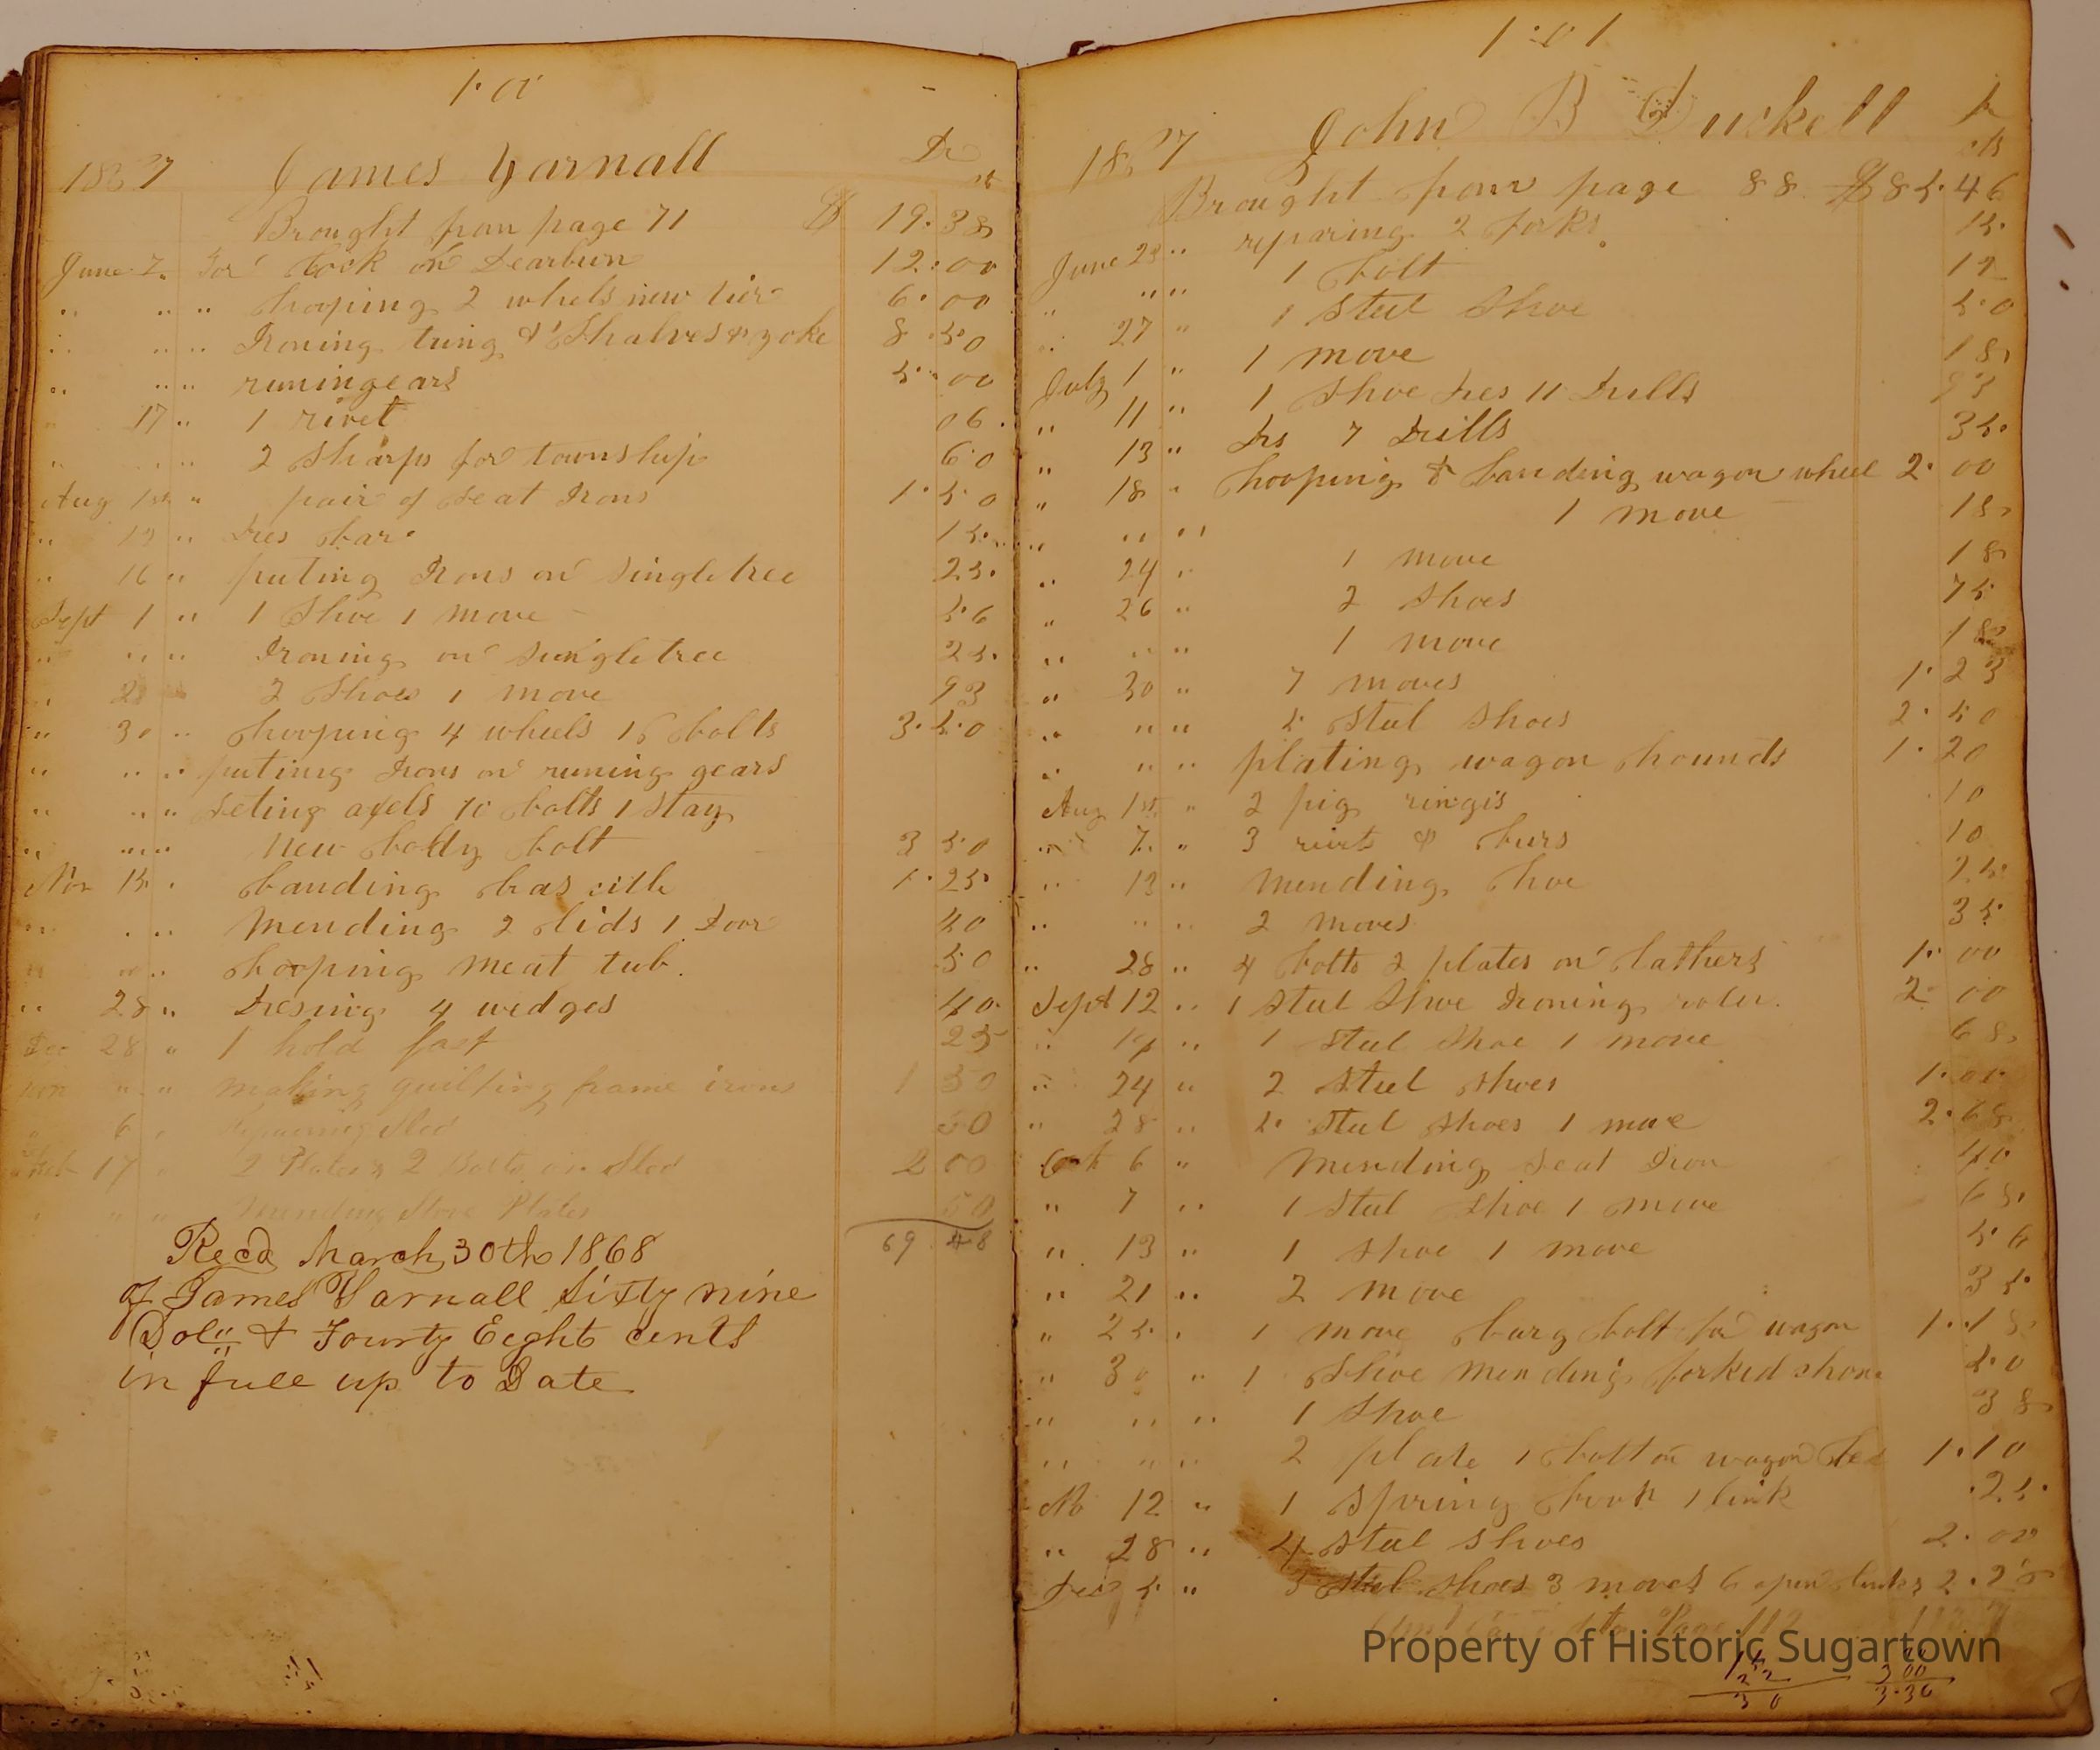 100
1867 James Yarnall Dr
cts
Brought from page 71 $ 19.38
June 7. for bock on Dearbun 12.00
" " " hooping 2 whels new tier 6.00
" " " Ironing tung & Shalves & yoke 8.50
" " " runingears 5.00
" 17 " 1 rivet 06
" " " 2 sharps for township 60
Aug 1st " pair of seat Irons 1.50
" 13 " dres bar 15
" 16 " puting Irons on singletree 25
Sept 1 " 1 Shoe 1 move 56
" " " Ironing on singletree 25
" 2 " 2 Shoes 1 move 93
" 30 " hooping 4 wheels 16 bolts 3.50
" " " puting Irons on runing gears
" " " seting axels 10 bolts 1 stay
" " " New body bolt 3 50
Nov 15 " banding 1.25
" " " Mending 2 lids 1 door 40
" " " hooping meat tub. 50
" 28 " dresing 4 wedges 40
Dec 28 " 1 hold fast 25
" " making quilting frame irons 1 50
" 6 " Sled 50
17 " 2 Plates 2 Bolts on Sled 2 00
" " " Mending Stove Plates 50
69.48
Recd March 30th 1868
of James Yarnall Sixty nine
Dol" & Fourty Eeght cents
in full up to Date
101
1867 John B Duskell Dr
cts
Brought from page 88 $85.46
June 23 " reparing 2 forks. 15
" " " 1 bolt 12
" 27 " 1 steel Shoe 50
July 1 " 1 move 18
" 11 " 1 Shoe dres 11 drills 93
" 13 " drs 7 drills 35
" 18 " hooping & banding wagon wheel 2.00
" " " 1 move 18
" 24 " 1 move 18
" 26 " 2 shoes 75
" " " 1 move 18
" 30 " 7 moves 1.23
" " " 5 steel shoes 2.50
" " " plating wagon hounds 1.20
Aug 1st " 2 pig ringis 10
" 7. " 3 rivits & burs 10
" 13 " mending hoe 25
" " " 2 moves 35
" 28 " 4 bolts 2 plates on lathers 1.00
Sept 12 " 1 steel Shoe Ironing roler. 2 00
" 19 " 1 steel shoe 1 move 68
" 24 " 2 steel shoes 1.00
" 28 " 5 steel shoes 1 move 2.68
Oct 6 " Mending seat Iron 40
" 7 " 1 steel shoe 1 move 68
" 13 " 1 shoe 1 move 56
" 21 " 2 move 35
" 25 " 1 move barg bolt for wagon 1.18
" 30 " 1 Shoe mending forked 50
" " " 1 shoe 38
" " " 2 plate 1 bolt on wagon bed 1.10
No 12 " 1 spring hook 1 link .25
" 28 " 4 steel shoes 2.00
Dec 5 " 3 steel shoes 3 moves 6 open links 2.25
Page 112
Property of Historic Sugartown
3 00
3 0 3.30